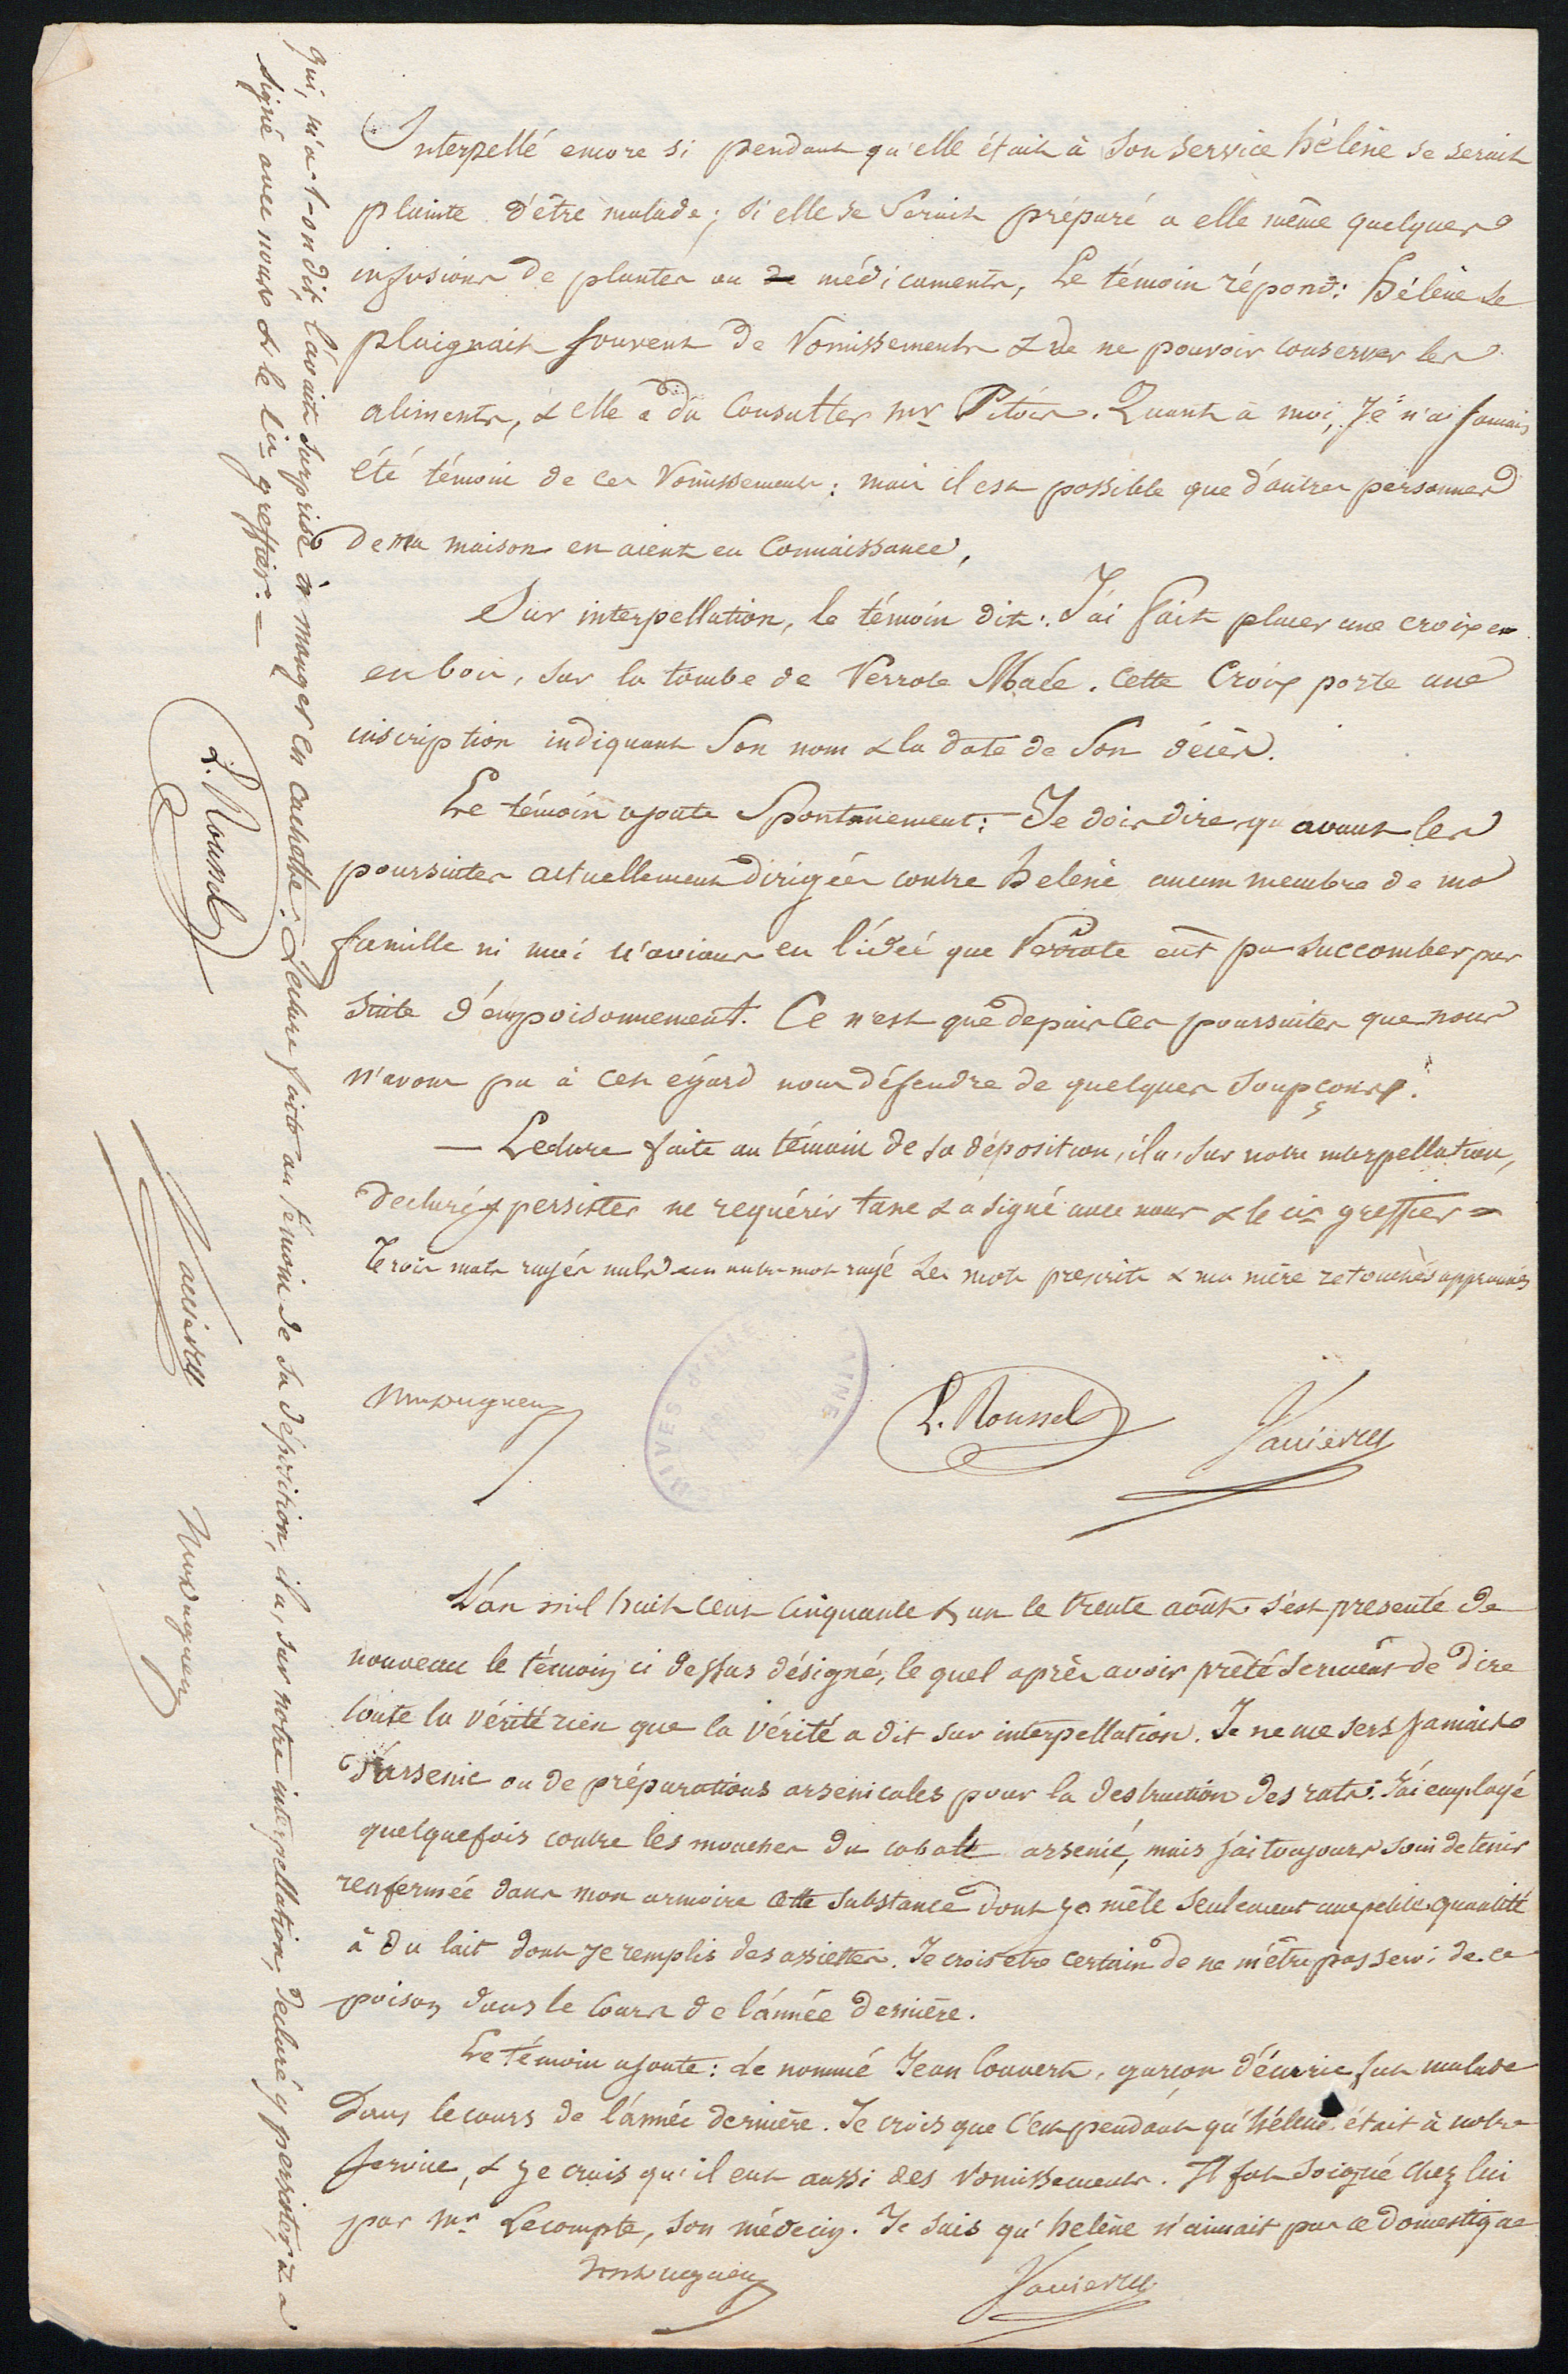 Interpellé encore si pendant qu'elle était à son service hélène se serait
plainte d'être malade; si elle se serait préparé a elle même quelques
infusions de plantes ou de médicaments, Le témoin répond: hélène se
plaignait souvent de vomissements & de ne pouvoir conserver les
aliments, & elle a du consulter mr Pitois. Quant à moi, Je n'ai jamais
été témoin de ces vomissements: mais il est possible que d'autres personnes
de ma maison en aient eu connaissance,
Sur interpellation, le témoin dit: J'ai fait placer une croix en
en bois, sur la tombe de Perrote Macé. Cette Croix porte une
inscription indiquant son nom & la date de son décès.
Le témoin ajoute Spontanement: Je dois dire qu'avant les
poursuites actuellement dirigées contre hélène aucun membre de ma
famille ni moi n'avions eu l'idée que Perrote eût pu succomber par
suite d'empoisonnement. Ce n'est que depuis ces poursuites que nous
n'avons pu à cet égard nous défendre de quelques soupçons.
— Lecture faite au témoin de sa déposition, il a, sur notre interpellation,
declaré y persister ne requérir taxe & a signé avec nous & le cis greffier =
Trois mots rayés nuls un autre mot rayé Les mots prescrits & ma mère retouchés approuvés
L. Roussel
Vannier
L'an mil huit cent cinquante & un le trente août s'est presenté de
nouveau le témoin ci dessus désigné, le quel après avoir prêté serment de dire
toute la vérité rien que la vérité a dit sur interpellation. Je ne me sers jamais
d'arsenic ou de préparations arsenicales pour la destruction des rats. J'ai employé
quelquefois contre les mouches du cobalt arsenié, mais j'ai toujours soin de tenir
renfermée dans mon armoire cette substance dont je mêle seulement une petite quantité
à du lait dont je remplis des assiettes. Je crois etre certain de ne m'être pas servi de ce
poison dans le cours de l'année dernière.
Le témoin ajoute: Le nommé Jean Couvert, garçon d'écurie fut malade
Dans le cours de l'année dernière. Je crois que c'est pendant qu'hélène était à notre
service, & je crois qu'il eut aussi des vomissements. Il fut soigné chez lui
par Mr Lecompte, son médecin. Je sais qu'helène n'aimait pas ce domestique
qui, m'a-t-on dit, l'avait surprise à manger en cachette. Lecture faite au témoin de sa déposition, il a, sur notre interpellation, declaré y persister, & a
signé avec nous & le cis greffier. =
L. Roussel